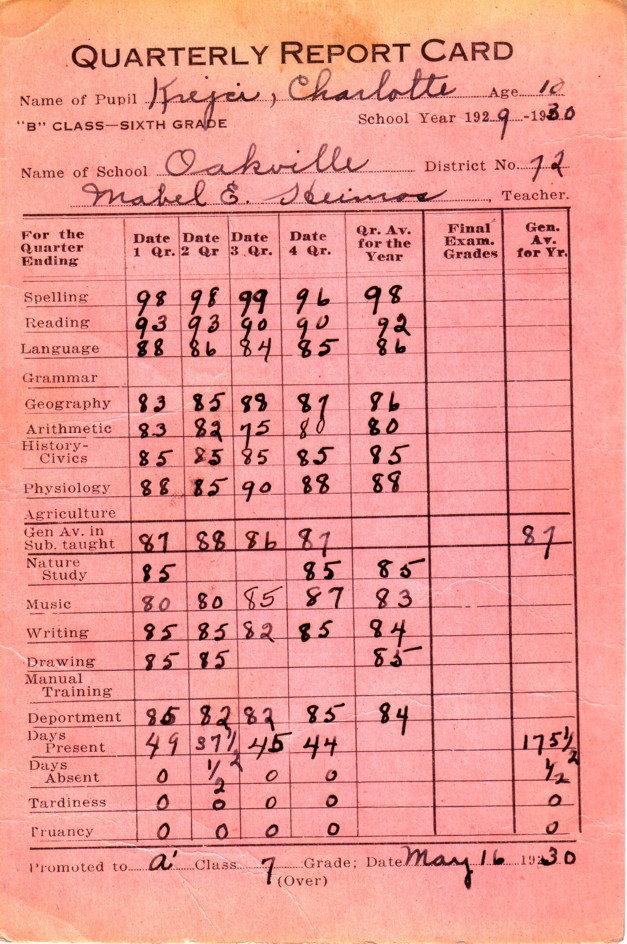 QUARTERLY REPORT CARD
Name of Pupil Krejci, Charlotte Age 10
"B" CLASS—SIXTH GRADE School Year 1929-1930
Name of School Oakville District No. 72
Mabel E. Heimos, Teacher.
For the Quarter Ending Date 1 Qr. Date 2 Qr Date 3 Qr. Date 4 Qr. Qr. Av. for the Year Final Exam. Grades Gen. Av. for Yr.
Spelling 98 98 99 96 98
Reading 93 93 90 90 92
Language 88 86 84 85 86
Grammar
Geography 83 85 88 87 86
Arithmetic 83 82 75 80 80
History-Civics 85 85 85 85 85
Physiology 88 85 90 88 88
Agriculture
Gen Av. in Sub. taught 87 88 86 87 87
Nature Study 85 85 85
Music 80 80 85 87 83
Writing 85 85 82 85 84
Drawing 85 85 85
Manual Training
Deportment 85 82 82 85 84
Days Present 49 37½ 45 44 175½
Days Absent 0 ½ 0 0 ½
Tardiness 0 0 0 0 0
Truancy 0 0 0 0 0
Promoted to "A" Class 7 Grade; Date May 16 1930
(Over)